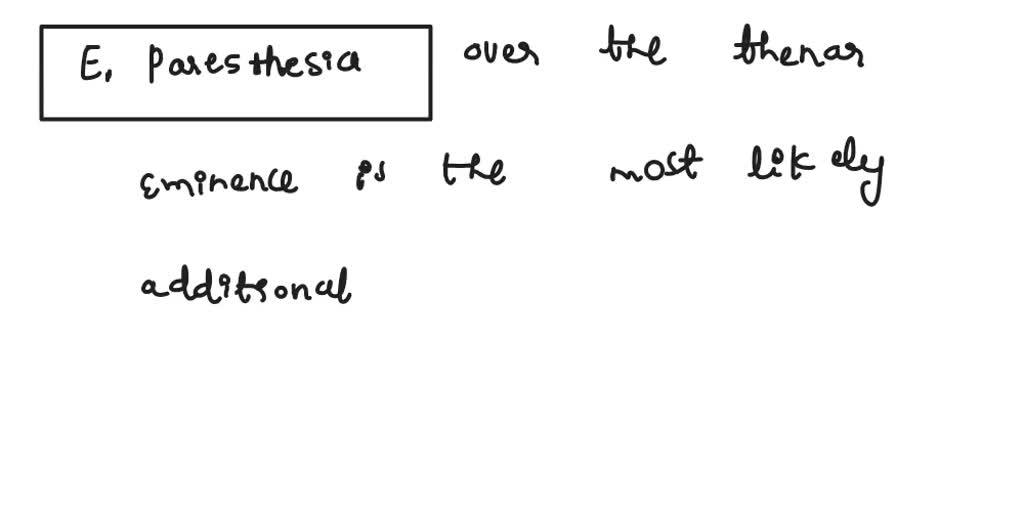 E. Paresthesia over the thenar
eminence is the most likely
additional